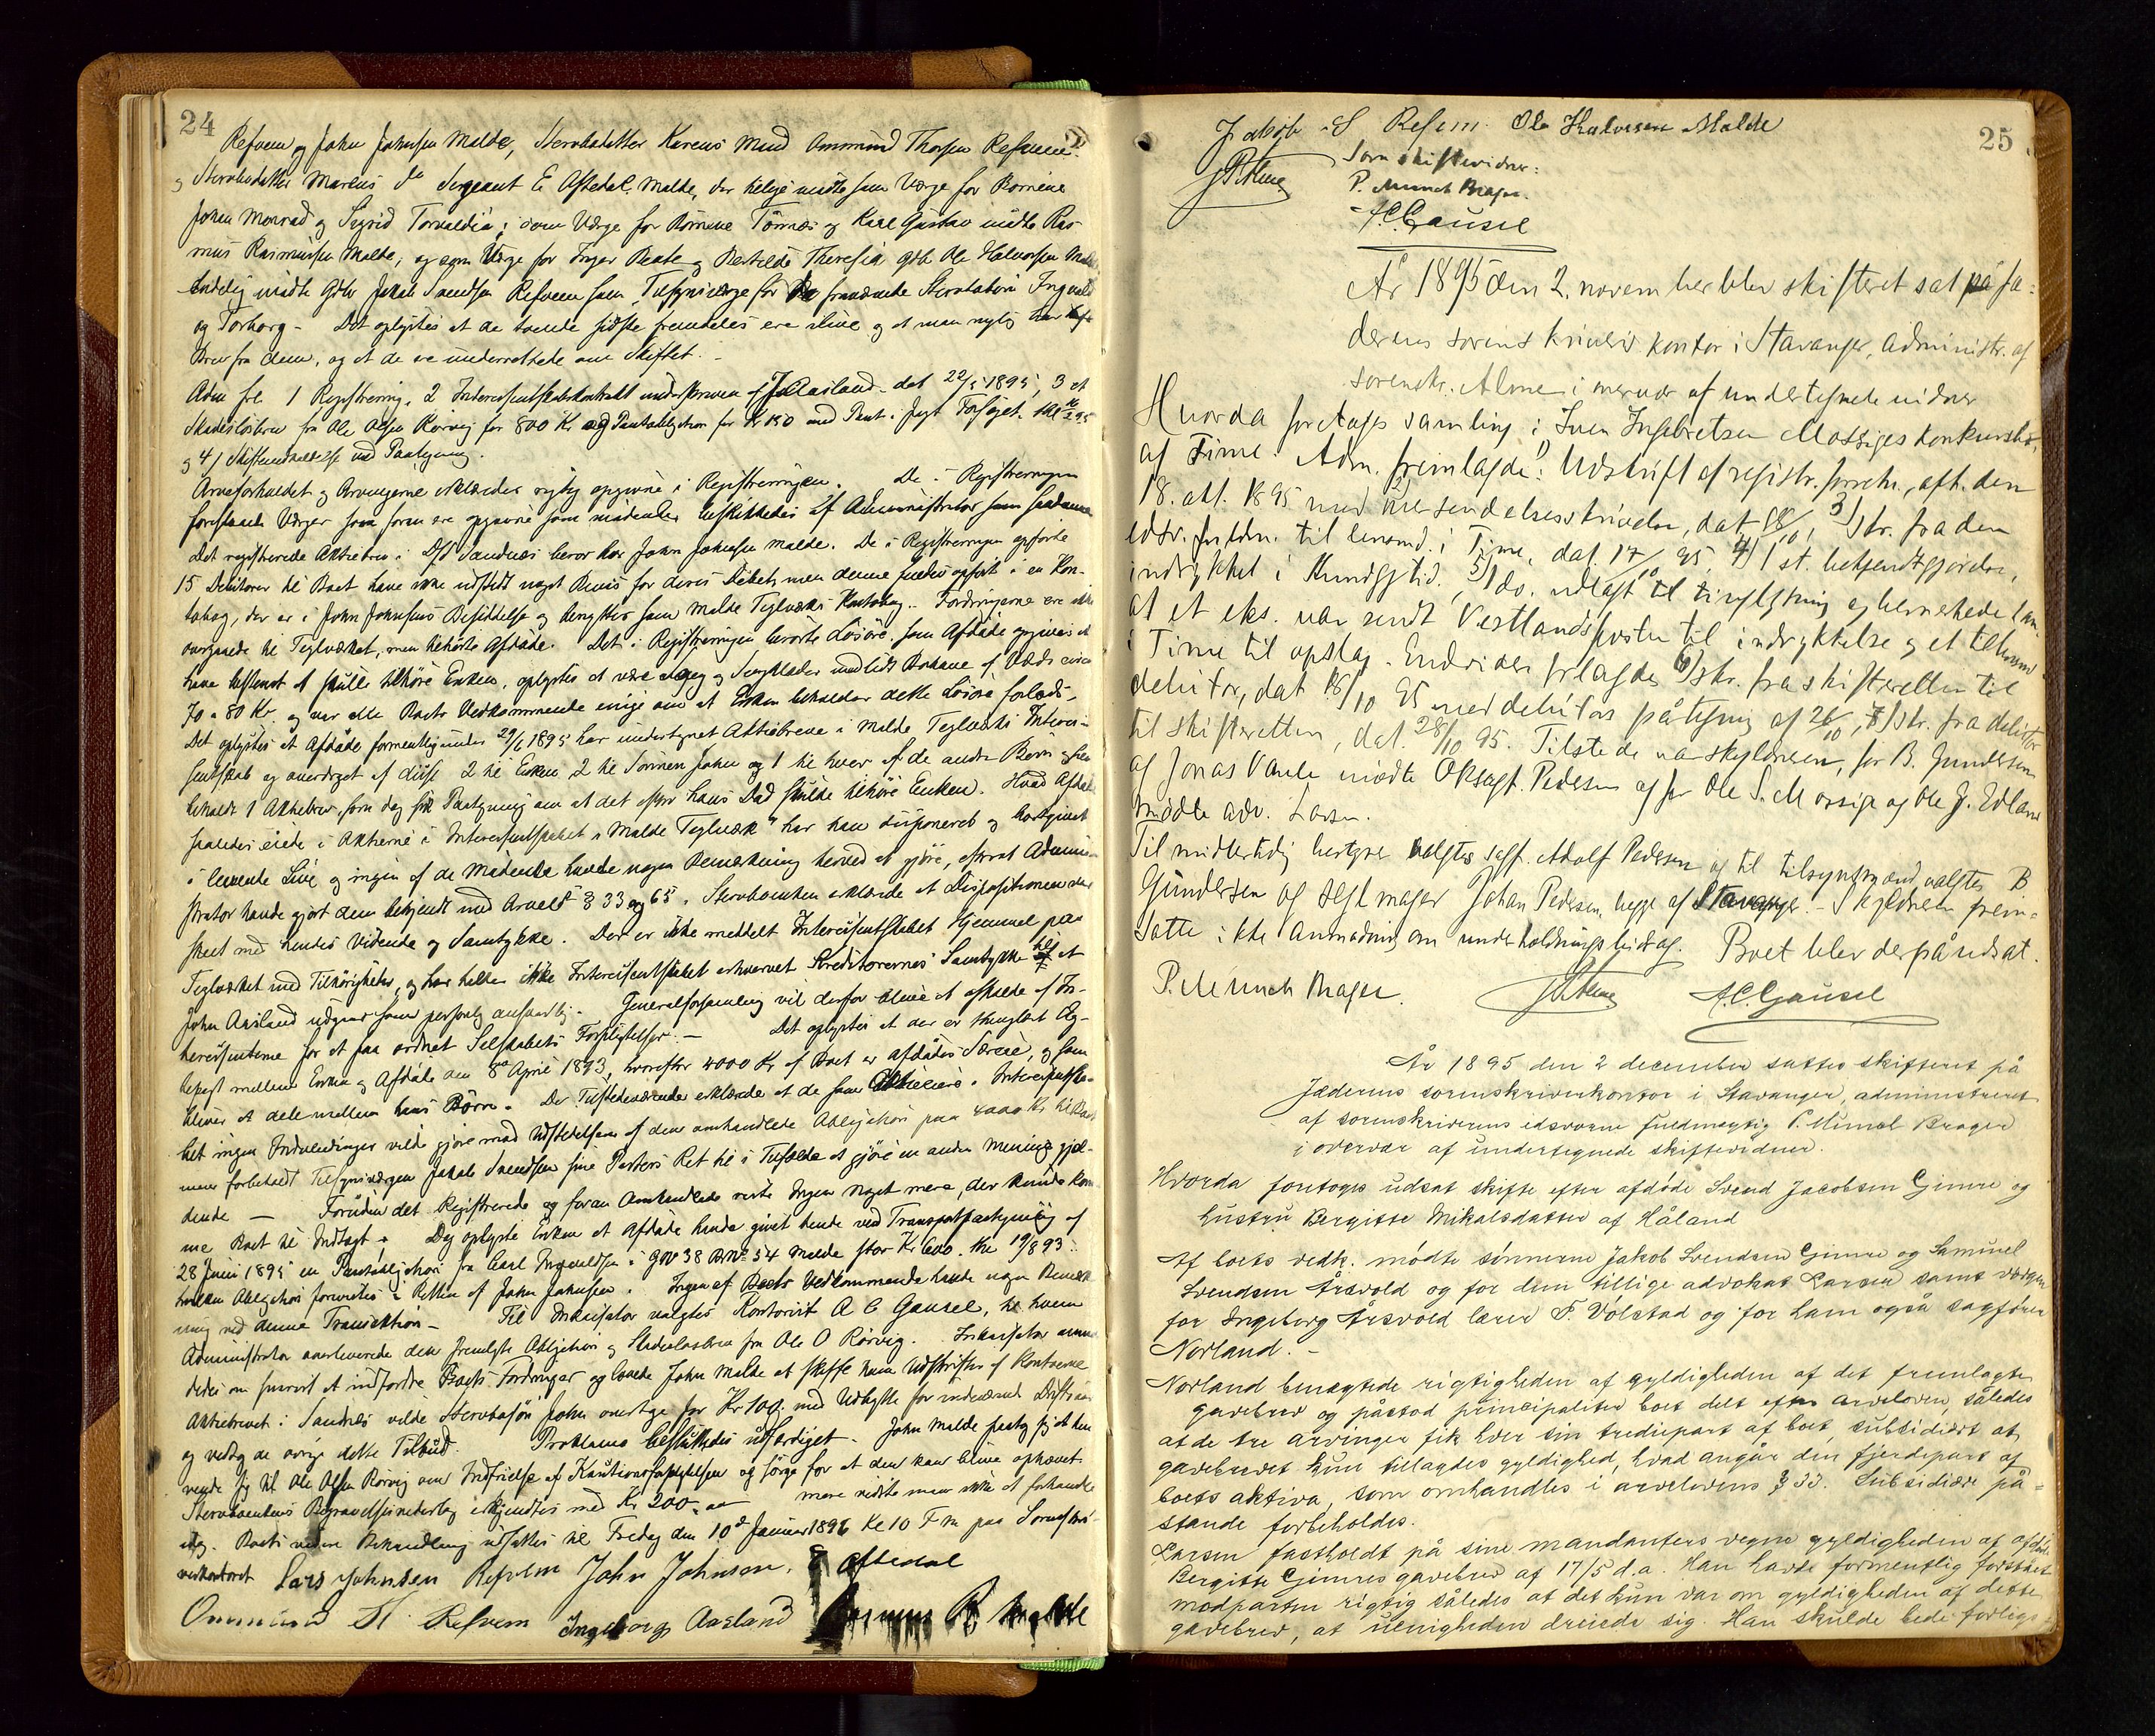 24
Refvem og John Johnsen Malde, Stervbodatter Karens Mand Ommund Thorsen Refvem
og Stervbodatter Maries do Sergeant E Aftedal, Malde, der tillige mødte som Værge for Børnene
Johan Monrad og Sigrid Torvaldia; som Værge for Børnene Tönnes og Karl Gustav mødte Ras
mus Rasmussen Malde, og som Værge for Inger Beate og Bertilde Theresia gdb. Ole Halvorsen Malde
Endelig mødte Gdbr Jakob Svendsen Refvem som Tilsynsværge for de fraværende Stervbobørn Ingvald
og Torborg - Det oplystes at de tvende sidste fremdeles ere ilive og at man nylig har havt
Brev fra dem, og at de ere underrettede om Skiftet. -
Adm frl 1 Registrering, 2 Interessentskabskontrakt underskreven af J Aasland dat 22/5 1895, 3 et
Skadesløsbrev fra Ole Olsen Rörvig for 800 Kr og Pantobligation for Kr 150 med Pant i Jagt Forsøget
og 4/ Skifteindkaldelse med Paategning.
Arveforholdet og Arvingerne erklæredes rigtig opgivne i Registreringen. De i Registreringen
foreslaaede Værger som foran ere opgivne som mødende beskikkedes af Administrator som saadanne
Det registrerede Aktiebrev i Dfl Sandnæs beror hos John Johnsen Malde. De i Registreringen opførte
15 Debitorer til Boet have ikke udstedt noget Bevis for deres Debet, men denne findes opført i en Kon-
tobog, der er i John Johnsens Besiddelse og benyttes som Malde Teglværks Kontobog. Fordringerne ere ikke
overgaaede til Teglværket, men tilhørte Afdøde. Det i Registreringen berørte Løsöre, som Afdøde opgives at
have bestemt at skulle tilhöre Enken, oplystes at være og Sengklæder med lidt Bohave af Værdi circa
70 a 80 Kr, og var alle Boets Vedkommende enige om at Enken beholder dette Lösöre forlods.
Det oplystes at Afdøde formentlig under 29/6 1895 har undertegnet Aktiebreve i Malde Teglværks Interes-
sentskab og overdraget af disse 2 til Enken, 2 til Sønnen John og 1 til hver af de andre Börn og selv
beholdt 1 Aktiebrev, som dog fik Paategning om at det efter hans Død skulde tilhöre Enken. Hvad Afdøde
saaledes eiede i Aktierne i Interessentskabet "Malde Teglværk" har han disponeret og bortgivet
i levende Live og ingen af de Mødende havde nogen Bemærkning herved at gjøre, efterat Admini-
strator havde gjort dem bekjendt med Arvel § 33 og 65. Stervboenken erklærede at Dispositionen var
skeet med hendes Vidende og Samtykke. Der er ikke meddelt Interessentskabet Hjemmel paa
Teglværket med Tilhörigheder, og har heller ikke Interessentskabet erhvervet Kreditorernes Samtykke til at
John Aasland udgaar som personlig ansvarlig. Generalforsamling vil derfor blive at afholde af In-
teressenterne for at faa ordnet Selskabets Forpligtelser. - Det oplystes at der er thinglæst Æg-
tepagt mellem Enken og Afdøde den 8de April 1893, hvorefter 4000 Kr af Boet er afdødes Særeie, og som
bliver at dele mellem hans Börn. De Tilstedeværende erklærede at de som Aktieeiere i Interessentska-
bet ingen Indvendinger vilde gjöre mod Udstedelsen af den omhandlede Obligation paa 4000 Kr til Boet
men forbeholdt Tilsynsværgen Jakob Svendsen sine Parters Ret til i Tilfælde at gjöre en anden Mening gjæl-
dende — Foruden det Registrerede og foran Omhandlede vidste Ingen Noget mere, der kunde kom
me Boet til Indtægt. Dog oplyste Enken at Afdøde havde givet hende ved Transportpaategning af
28 Juni 1895 en Pantobligation fra Carl Ingvaldsen i GNo 38 BNo 54 Malde stor Kr 600. thl 19/8 93.
hvilken Obligation foreviste i Retten af John Johnsen. Ingen af Boets Vedkommende havde nogen Bemærk
ning ved denne Transaktion - Til Inkassator valgtes Kontorist A C Gausel, til hvem
Administrator overleverede den fremlagte Obligation og Skadesløsbrev fra Ole O Rörvig. Inkassator anmo
dedes om snarest at indfordre Boets Fordringer og lovede John Malde at skaffe ham Udskrifter af Kontoerne
Aktiebrevet i Sandnæs vilde Stervbosön John overtage for Kr 100 med Udbytte for indeværende Driftsaar
og vedtog de øvrige dette Tilbud. Proklama besluttedes udfærdiget. John Malde paatog sig at hen
vende sig til Ole Olsen Rörvig om Indfrielse af Kautionsforpligtelsen og sörge for at den kan blive ophævet
Stervboenkens Begravelsesvederlag erkjendtes med Kr 200.00 mere vidste man ikke at forhandle
idag. Boets videre Behandling udsattes til Fredag den 10de Januar 1896 Kl 10 Fm paa Sorenskri-
verkontoret Lars Johnsen Refvem John Johnsen, E Aftedal
Ommund Th. Refvem Ingeborg Aasland Rasmus R Malde
25
Jakob S Refvem Ole Halvorsen Malde
Som skiftevidner:
P. Munch Brager.
A.C. Gausel
År 1895 den 2. november blev skifteret sat på Jæ-
derens sorenskriveris kontor i Stavanger, administr. af
sorenskr. Alme i overvær af undertegnede vidner
Hvorda foretages samling i Sven Ingebretsen Mossiges konkursbo,
af Time. Adm. fremlagde 1) Udskrift af registr. forretn., afh. den
18. okt. 1895 med 2) oversendelsesskrivelse, dat 18/10, 3) skr. fra den
edsv. fuldm. til lensmd. i Time, dat. 17/10 95, 4) 1 st. bekjendtgjørelse,
indrykket i Kundgj.tid. 5) 1 do. udlagt til tinglysning og bemerkede
at et eks. var sendt Vestlandsposten til indrykkelse og et til lensmd
i Time til opslag. Endvidere frlagdes 6) skr. fra skifteretten til
debitor, dat 18/10 95 med debitors påtegning af 26/10, 7) skr. fra debitor
til skifteretten, dat. 28/10 95. Tilstede var skyldneren, for B. Gundersen
og Jonas Vaule mødte Oksagf. Pedersen og for Ole S. Mossige og Ole G. Edland
mødte adv. Larsen.
Til midlertidig bestyrer valgtes sagf. Adolf Pedersen og til tilsynsmænd valgtes B
Gundersen og seglmager Johan Pedersen, begge af Stavanger. - Skyldneren frem-
satte ikke anmodning om underholdningsbidrag. Boet blev derpå udsat.
P. Munch Brager. A.C. Gausel
År 1895 den 2 december sattes skifteret på
Jæderens sorenskriverkontor i Stavanger, administreret
af sorenskriverens edsvorne fuldmægtig P. Munch Brager
i overvær af undertegnede skiftevidner.
Hvorda foretoges udsat skifte efter afdöde Svend Jacobsen Gimre og
hustru Bergitte Mikalsdatter af Håland
Af boets vedk. mødte sönnerne Jakob Svendsen Gimre og Samuel
Svendsen Årsvold og for dem tillige advokat Larsen samt værgen
for Ingeborg Årsvold lærer T. Volstad og for ham også sagfører
Norland. -
Norland benægtede rigtigheden af gyldigheden af det fremlagte
gavebrev og påstod principaliter boet delt efter arveloven, således
at de tre arvinger fik hver sin trediepart af boet, subsidiært at
gavebrevet kun tillagdes gyldighed, hvad angår den fjerdepart af
boets aktiva, som omhandles i arvelovens § 33. Subsidiære på-
stande forbeholdes.
Larsen fastholdt på sine mandanters vegne gyldigheden af afdöde
Bergitte Gimres gavebrev af 17/5 d.a. Han havde formentlig forstået
modparten rigtig således at det kun var om gyldigheden af dette
gavebrev, at uenigheden dreiede sig. Han skulde bede forligs-